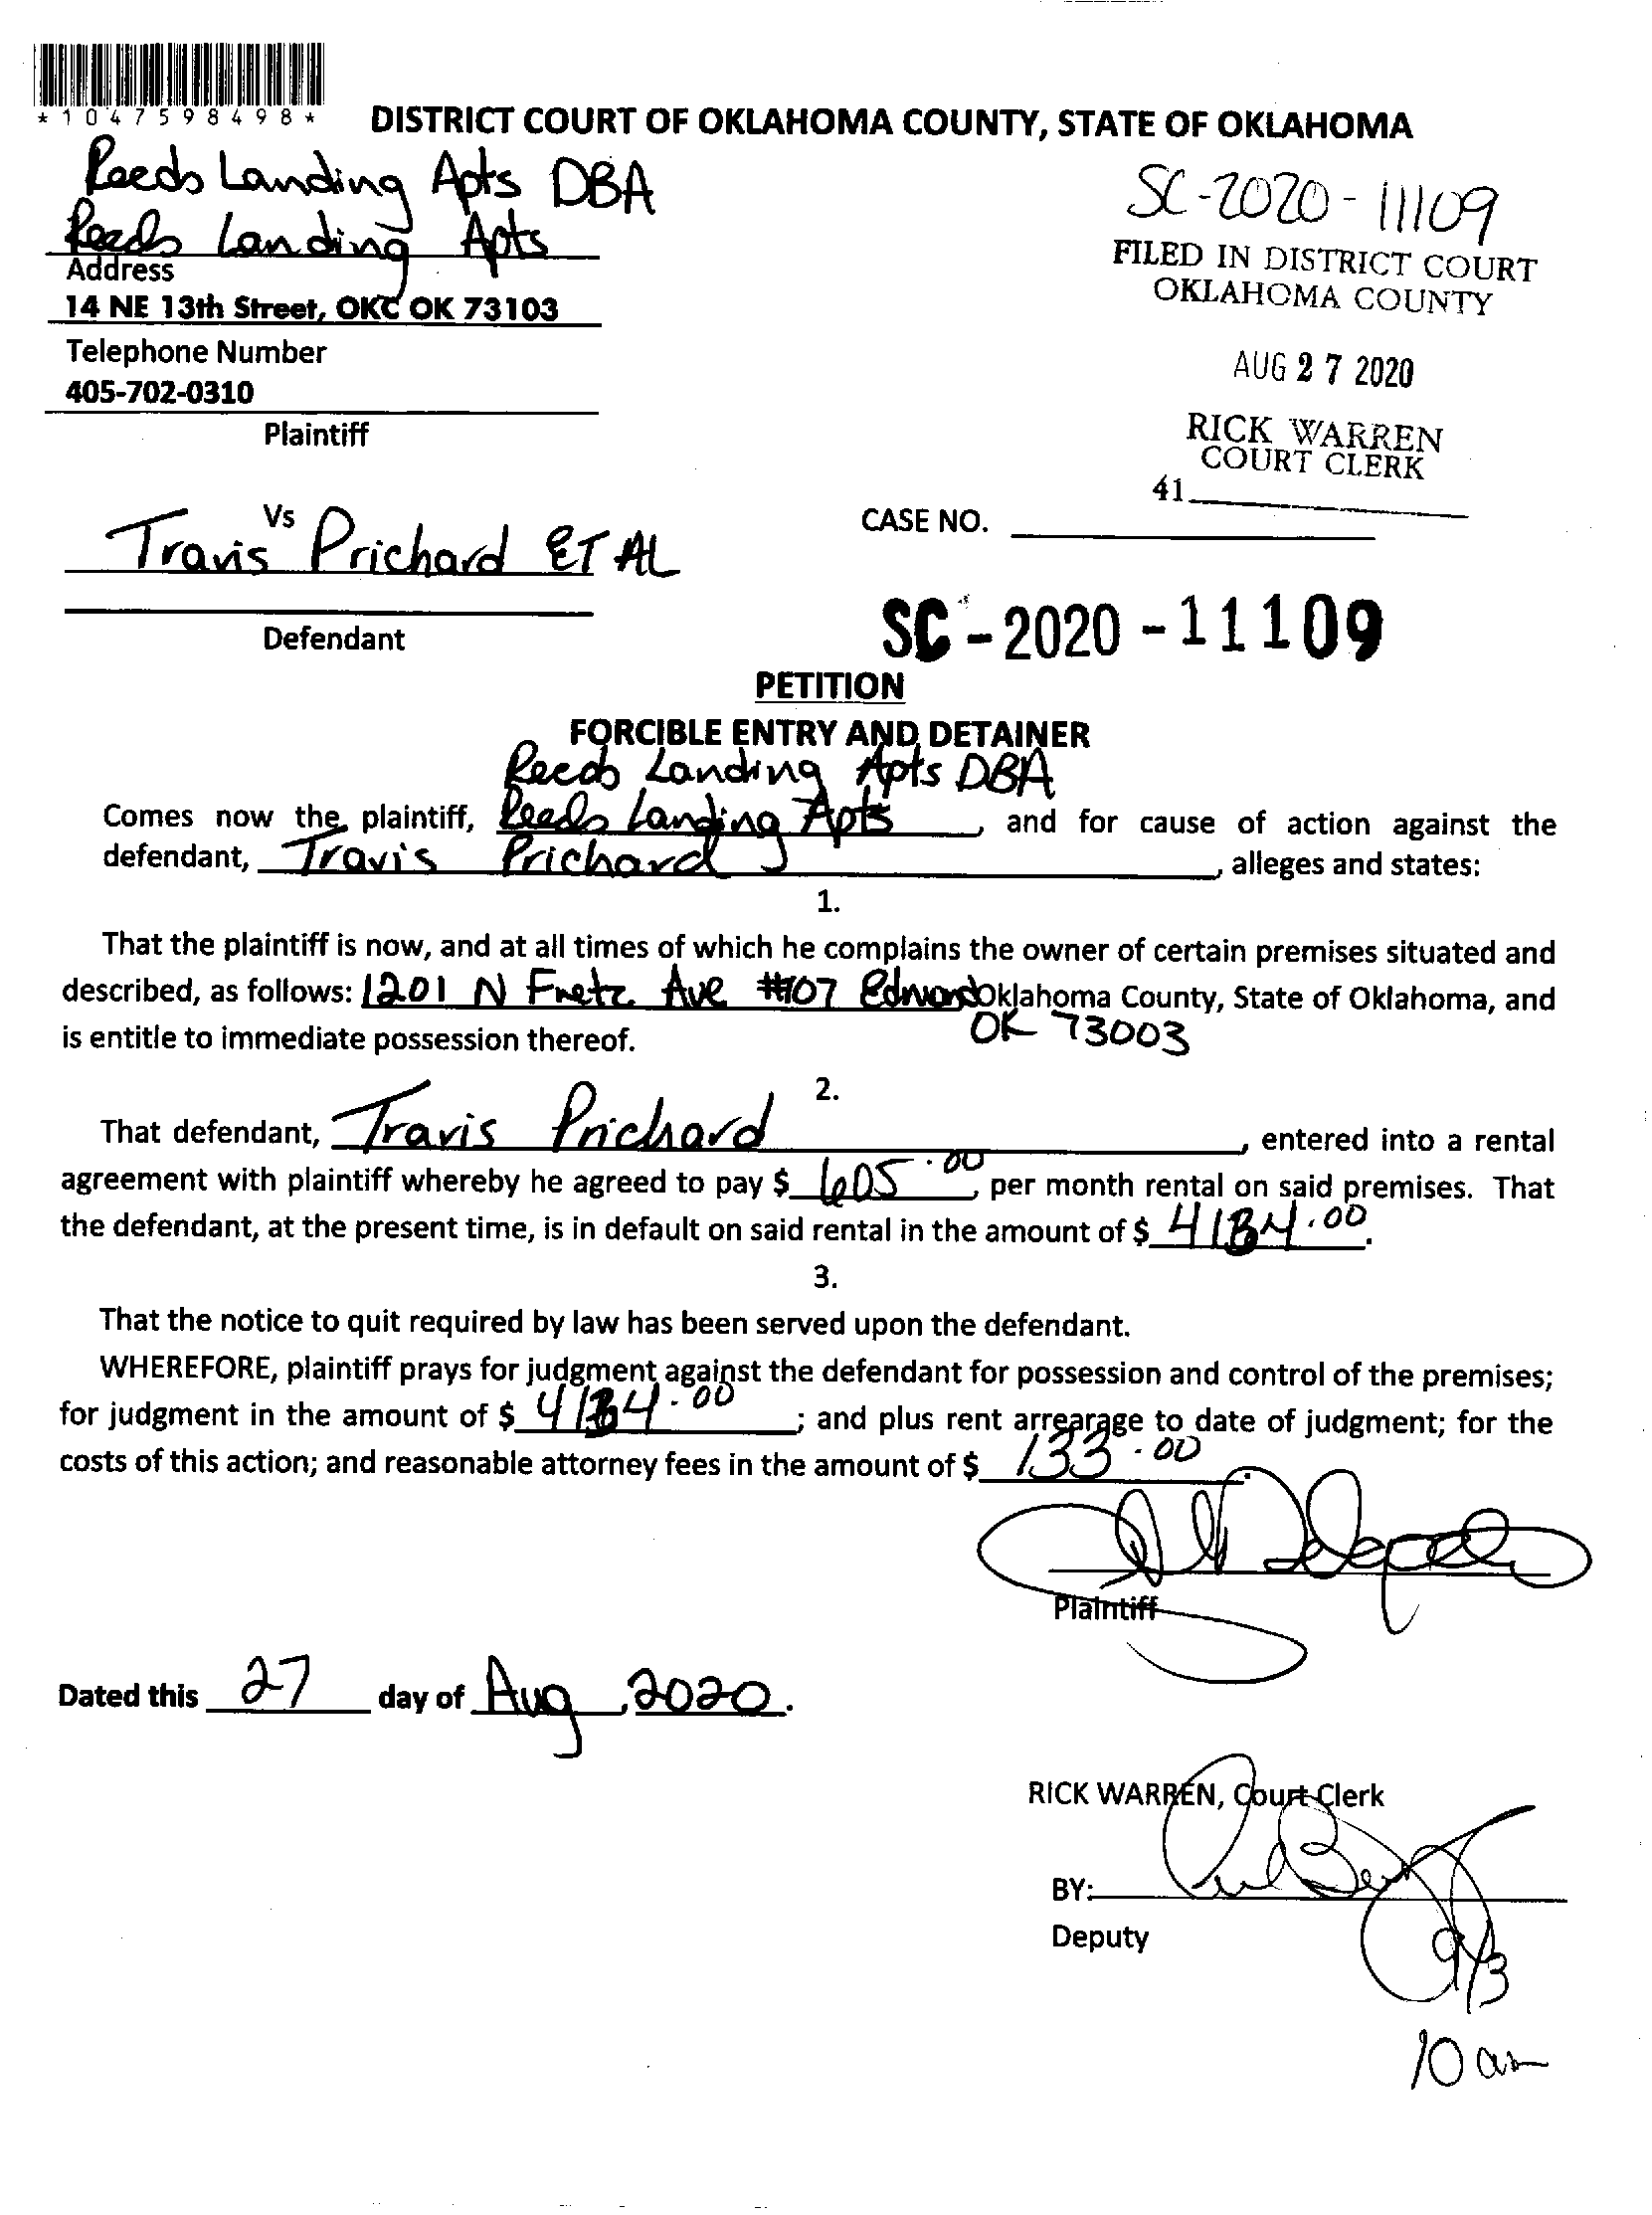 *1047598498*
DISTRICT COURT OF OKLAHOMA COUNTY, STATE OF OKLAHOMA
Reeds Landing Apts DBA
Reeds Landing Apts
Address
14 NE 13th Street, OKC OK 73103
Telephone Number
405-702-0310
Plaintiff
SC-2020-11109
FILED IN DISTRICT COURT
OKLAHOMA COUNTY
AUG 27 2020
RICK WARREN
COURT CLERK
41
Vs
Travis Prichard ET AL
Defendant
CASE NO.
SC-2020-11109
PETITION
FORCIBLE ENTRY AND DETAINER
Reeds Landing Apts DBA
Comes now the plaintiff, Reeds Landing Apts, and for cause of action against the
defendant, Travis Prichard, alleges and states:
1.
That the plaintiff is now, and at all times of which he complains the owner of certain premises situated and
described, as follows: 1201 N Fretz Ave #107 Edmond Oklahoma County, State of Oklahoma, and
OK 73003
is entitle to immediate possession thereof.
2.
That defendant, Travis Prichard, entered into a rental
agreement with plaintiff whereby he agreed to pay $ 605.00, per month rental on said premises. That
the defendant, at the present time, is in default on said rental in the amount of $
3.
That the notice to quit required by law has been served upon the defendant.
WHEREFORE, plaintiff prays for judgment against the defendant for possession and control of the premises;
for judgment in the amount of $ ; and plus rent arrearage to date of judgment; for the
costs of this action; and reasonable attorney fees in the amount of $ 133.00.
Plaintiff
Dated this 27 day of Aug, 2020.
RICK WARREN, Court Clerk
BY:
Deputy
9/3
10 am